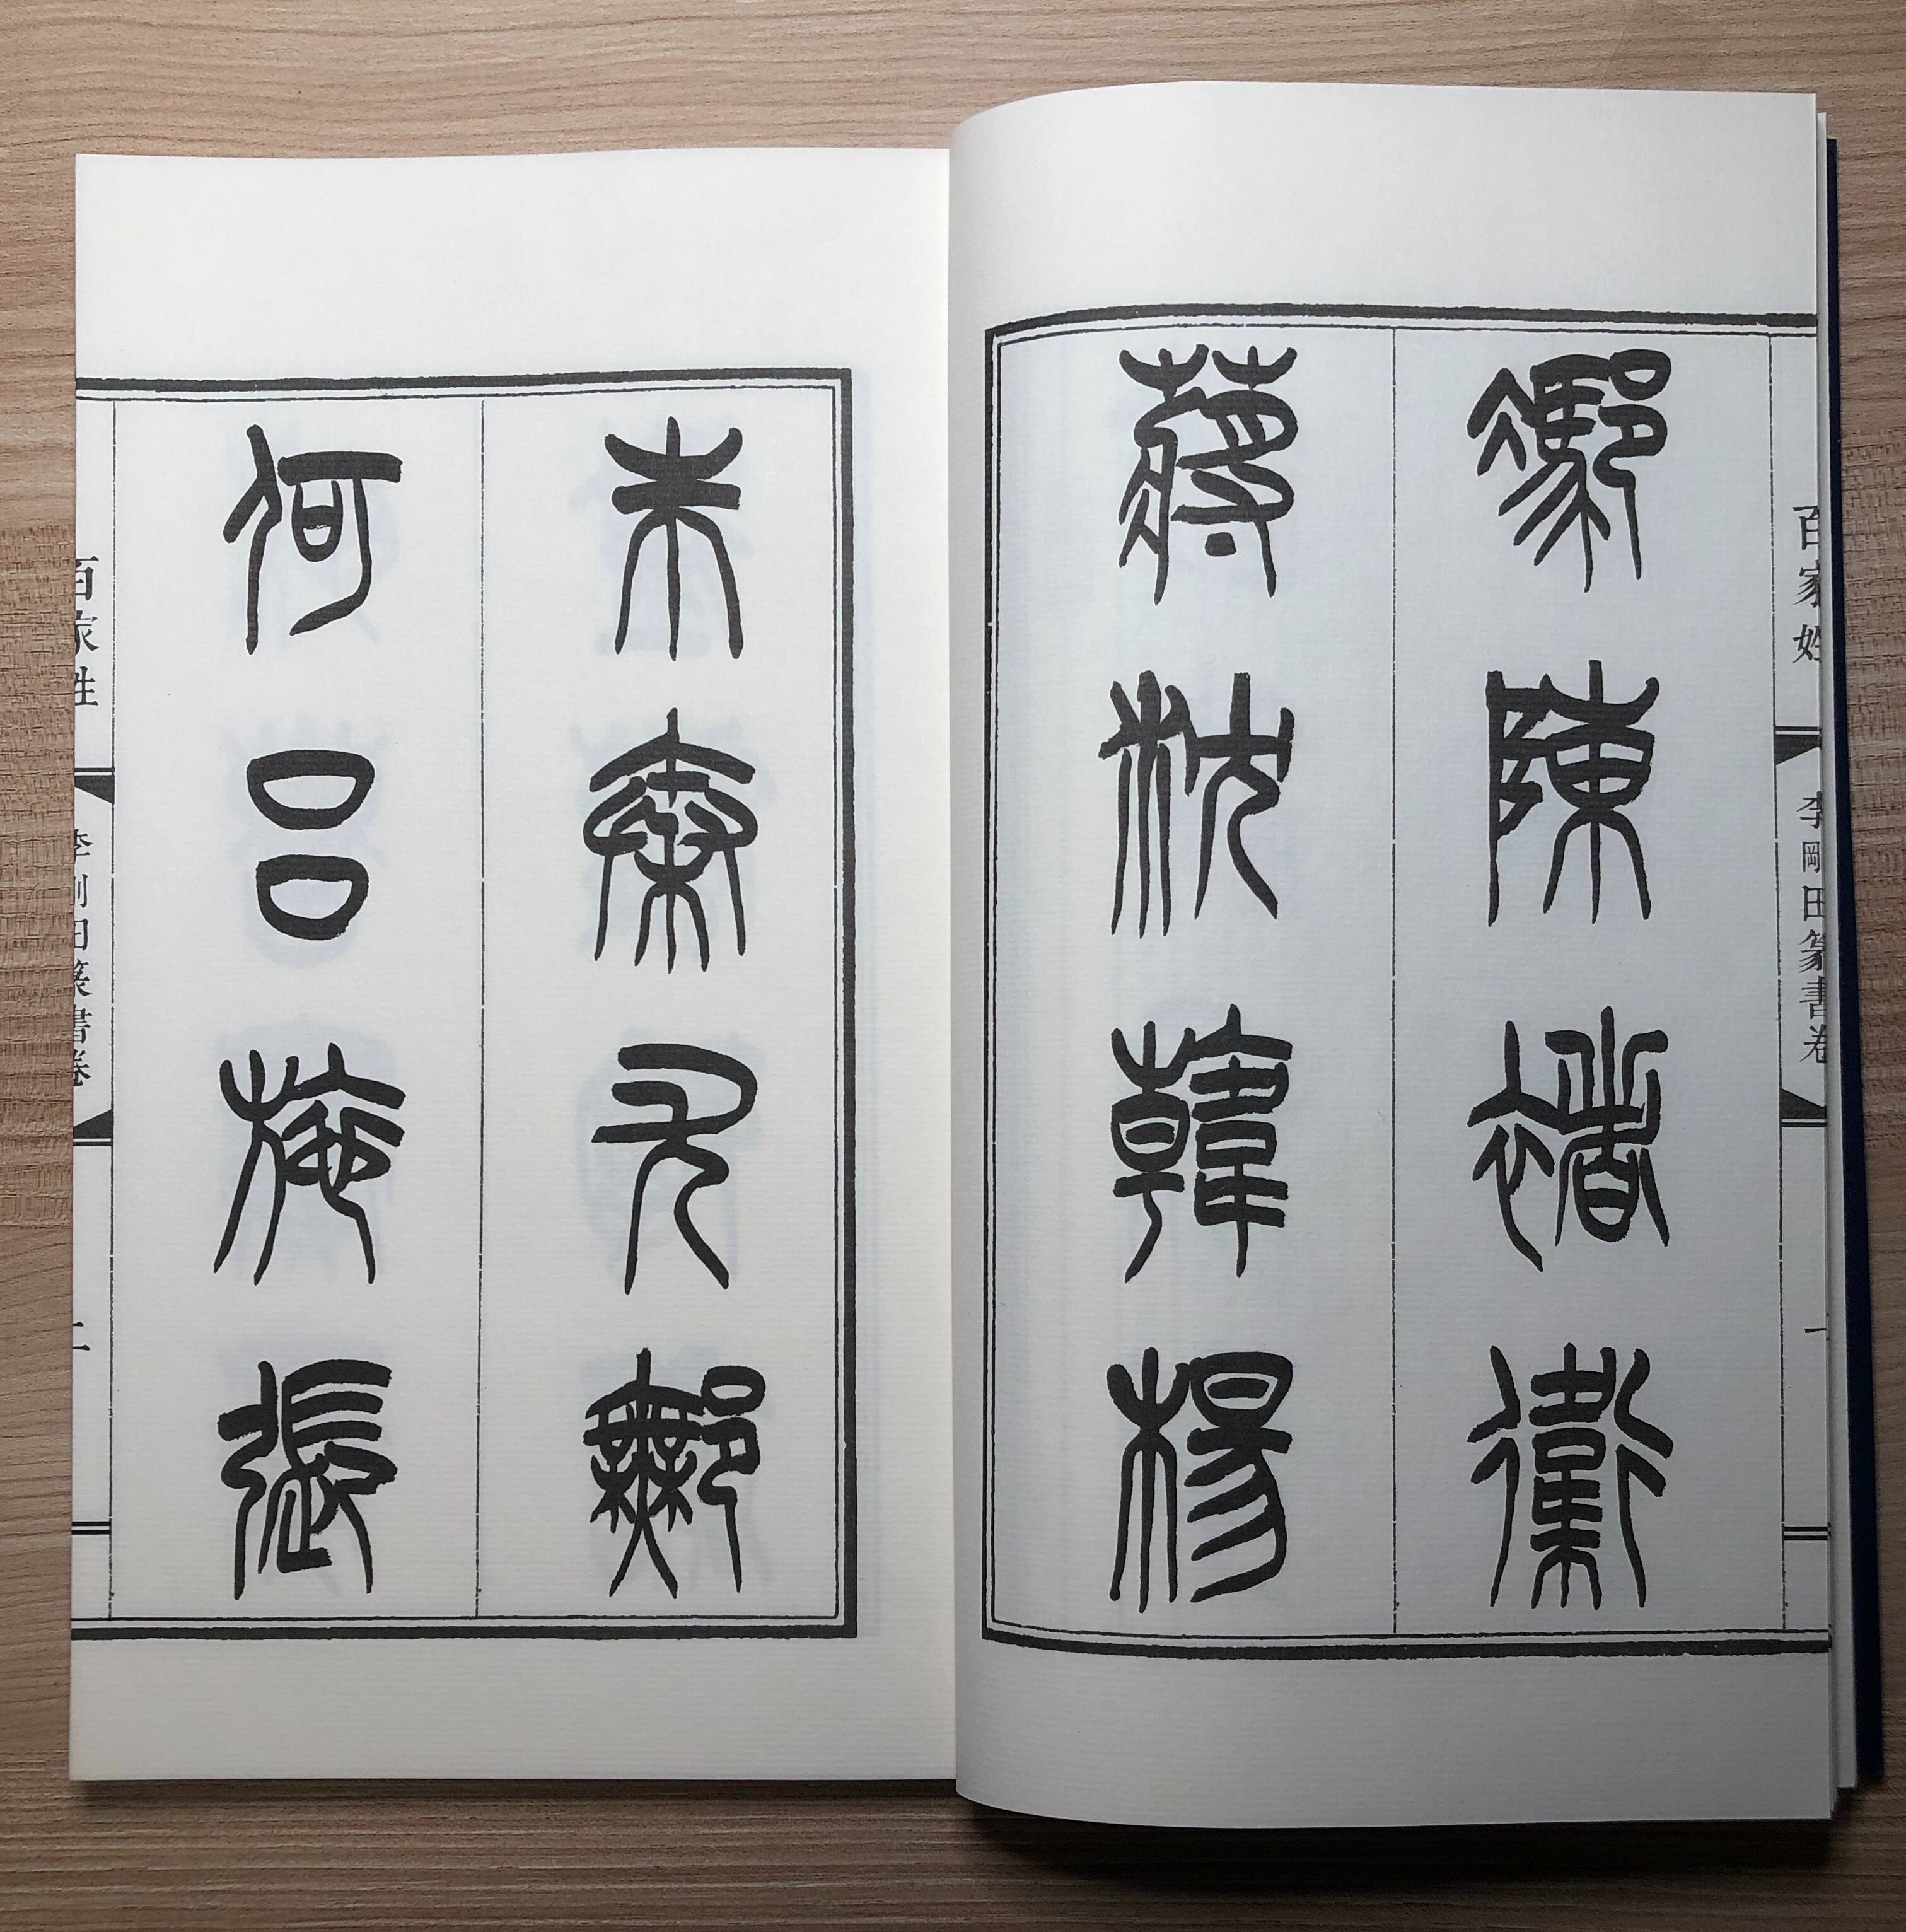 百家姓
李剛田篆書卷
一
馮陳褚衛
蔣沈韓楊
朱秦尤鄦
何呂施張
百家姓
李剛田篆書卷
二